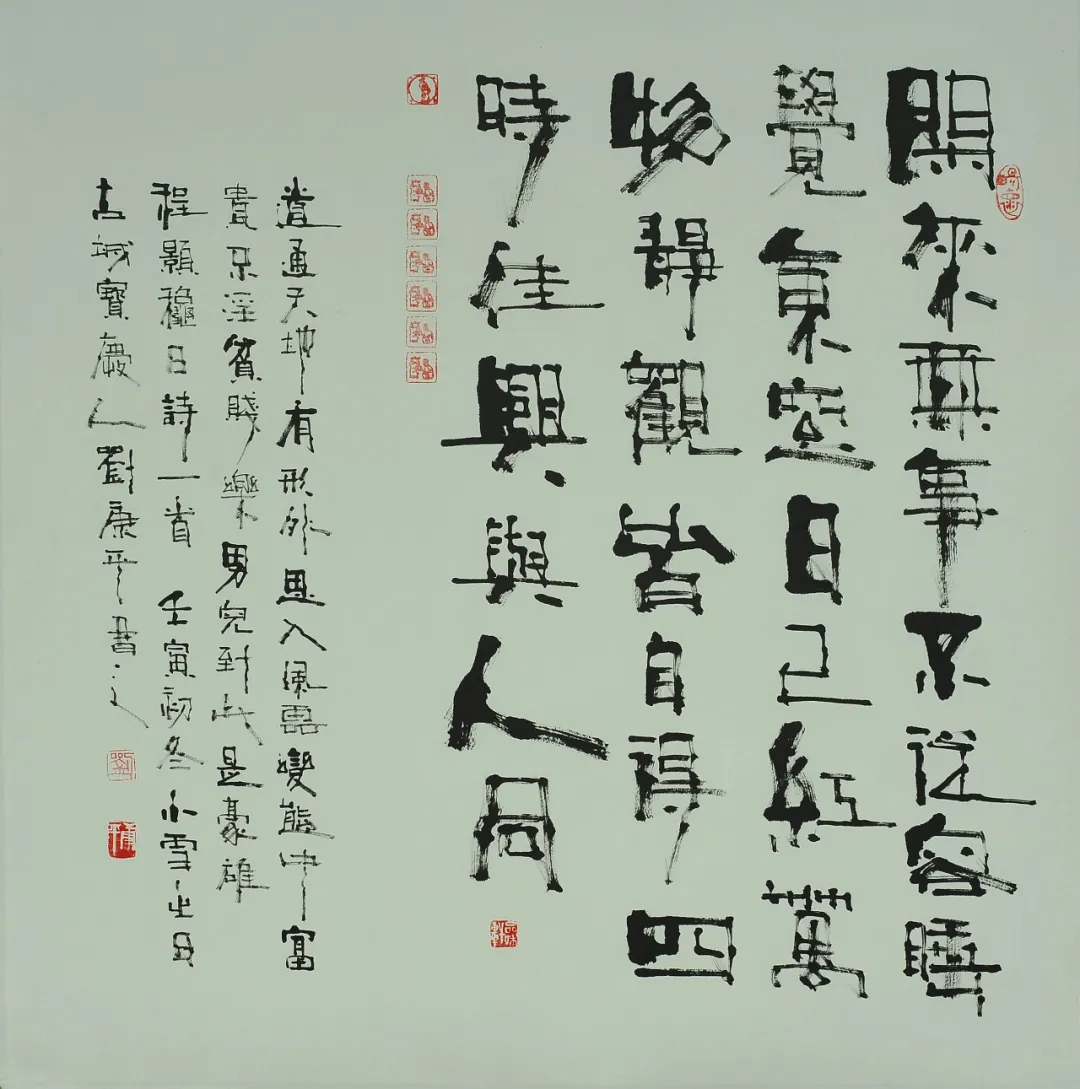 閑來無事不從容睡
覺東窗日已紅萬
物靜觀皆自得四
時佳興與人同
道通天地有形外思入風雲變態中富
貴不淫貧賤樂男兒到此是豪雄
程顥穐日詩一首 壬寅初冬小雪之日
古城寶慶人劉康平書之
劉
康平